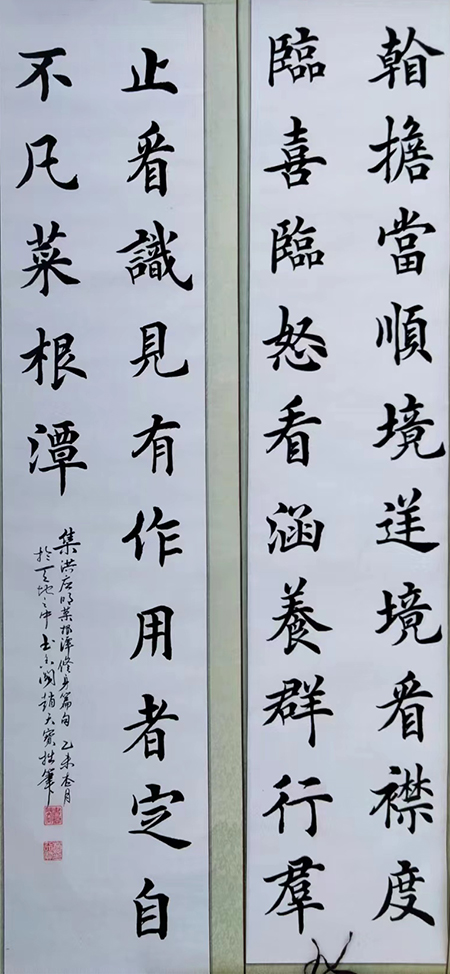 看擔當順境逆境看襟度
臨喜臨怒看涵養群行羣
止看識見有作用者定自
不凡菜根潭
集洪应明菜根潭修身篇句 乙未杏月
於天地之中 趙天寳拙筆